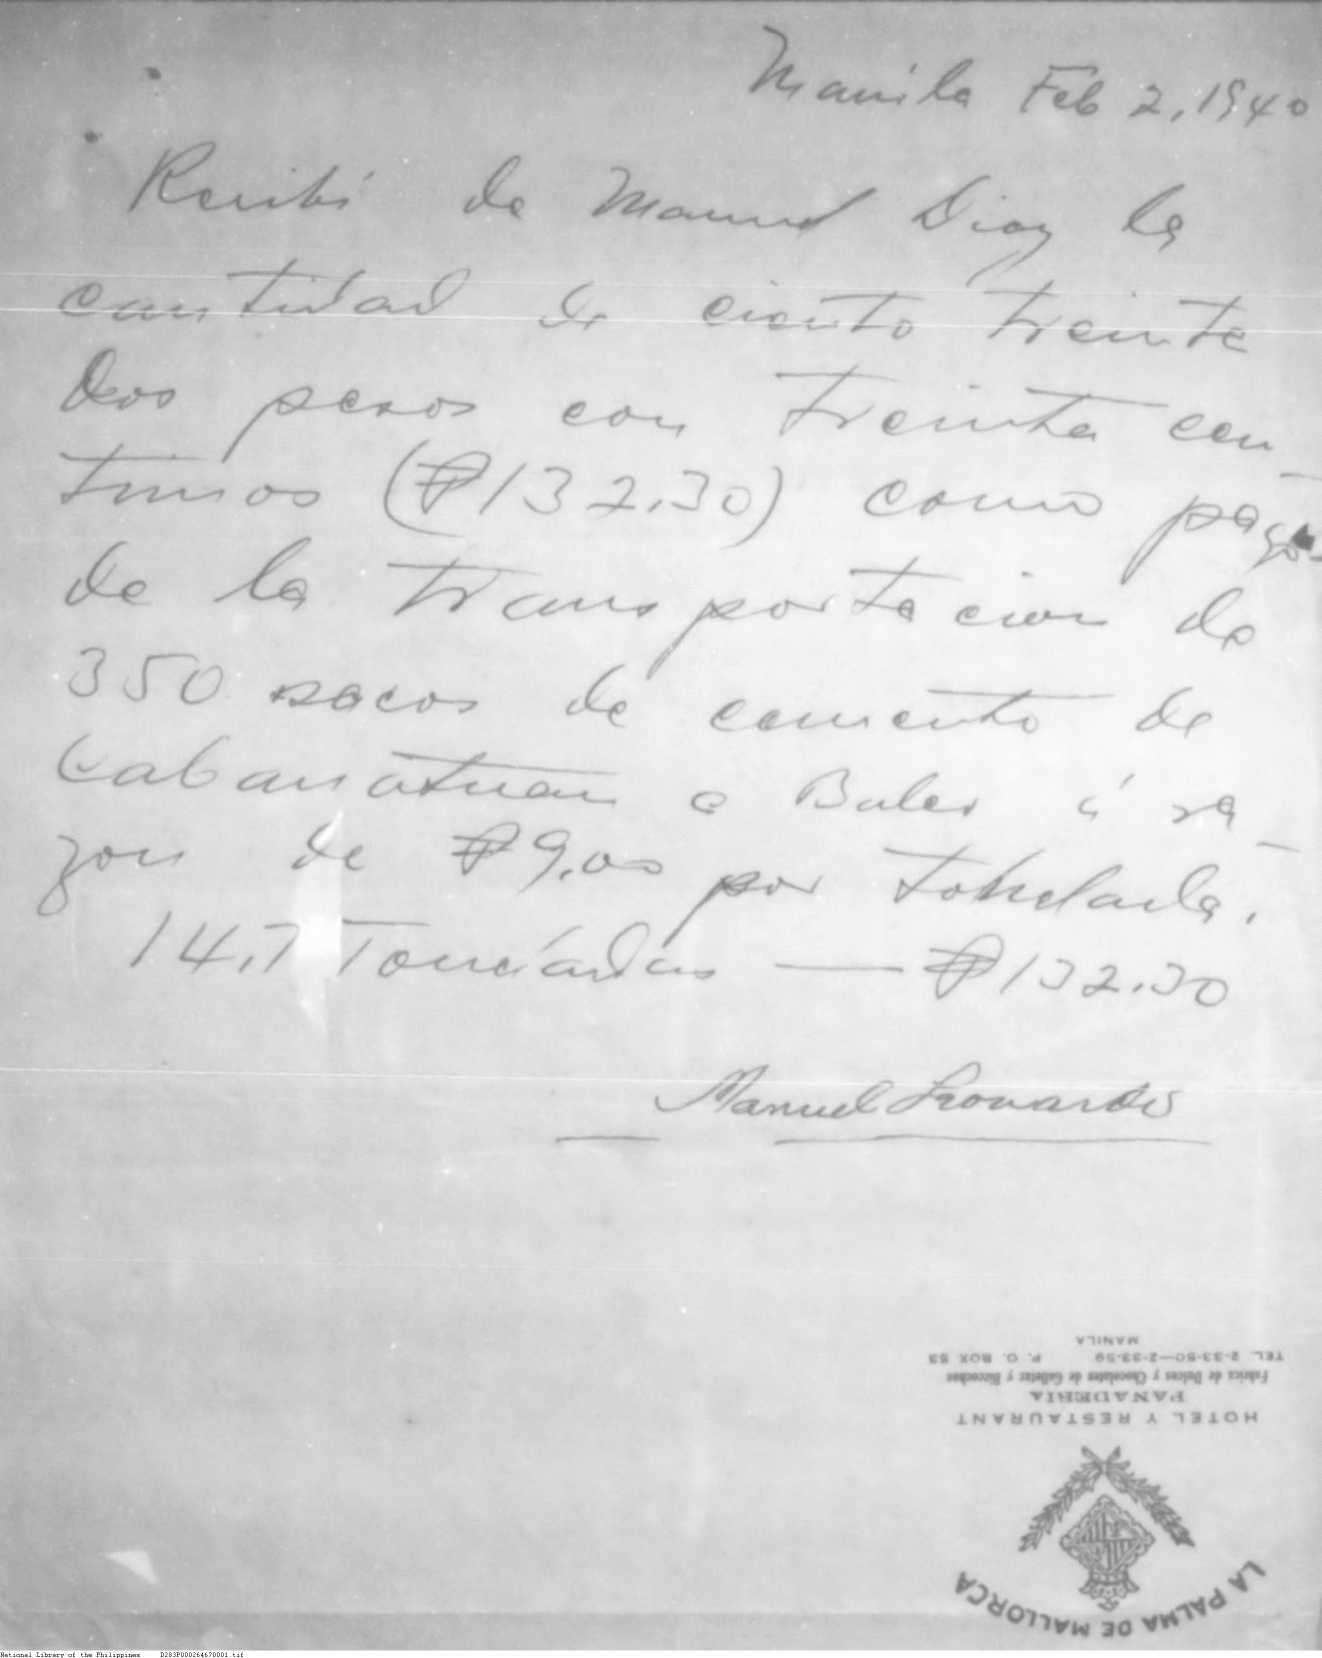 Manila Feb 2, 1940
Recibí de Manuel Diaz la
cantidad de ciento treinta
dos pesos con treinta cen-
timos (₱132.30) como pago
de la transportacion de
350 sacos de cemento de
Cabanatuan a Baler á ra-
zon de ₱9.00 por tonelada.
14.7 Toneladas — ₱132.30
Manuel Leonardo
LA PALMA DE MALLORCA
HOTEL Y RESTAURANT
PANADERIA
Fabrica de Dulces y Chocolates de Galletas y Bizcochos
TEL. 2-33-50—2-33-59 P. O. BOX 53
MANILA
National Library of the Philippines D283P000264670001.tif